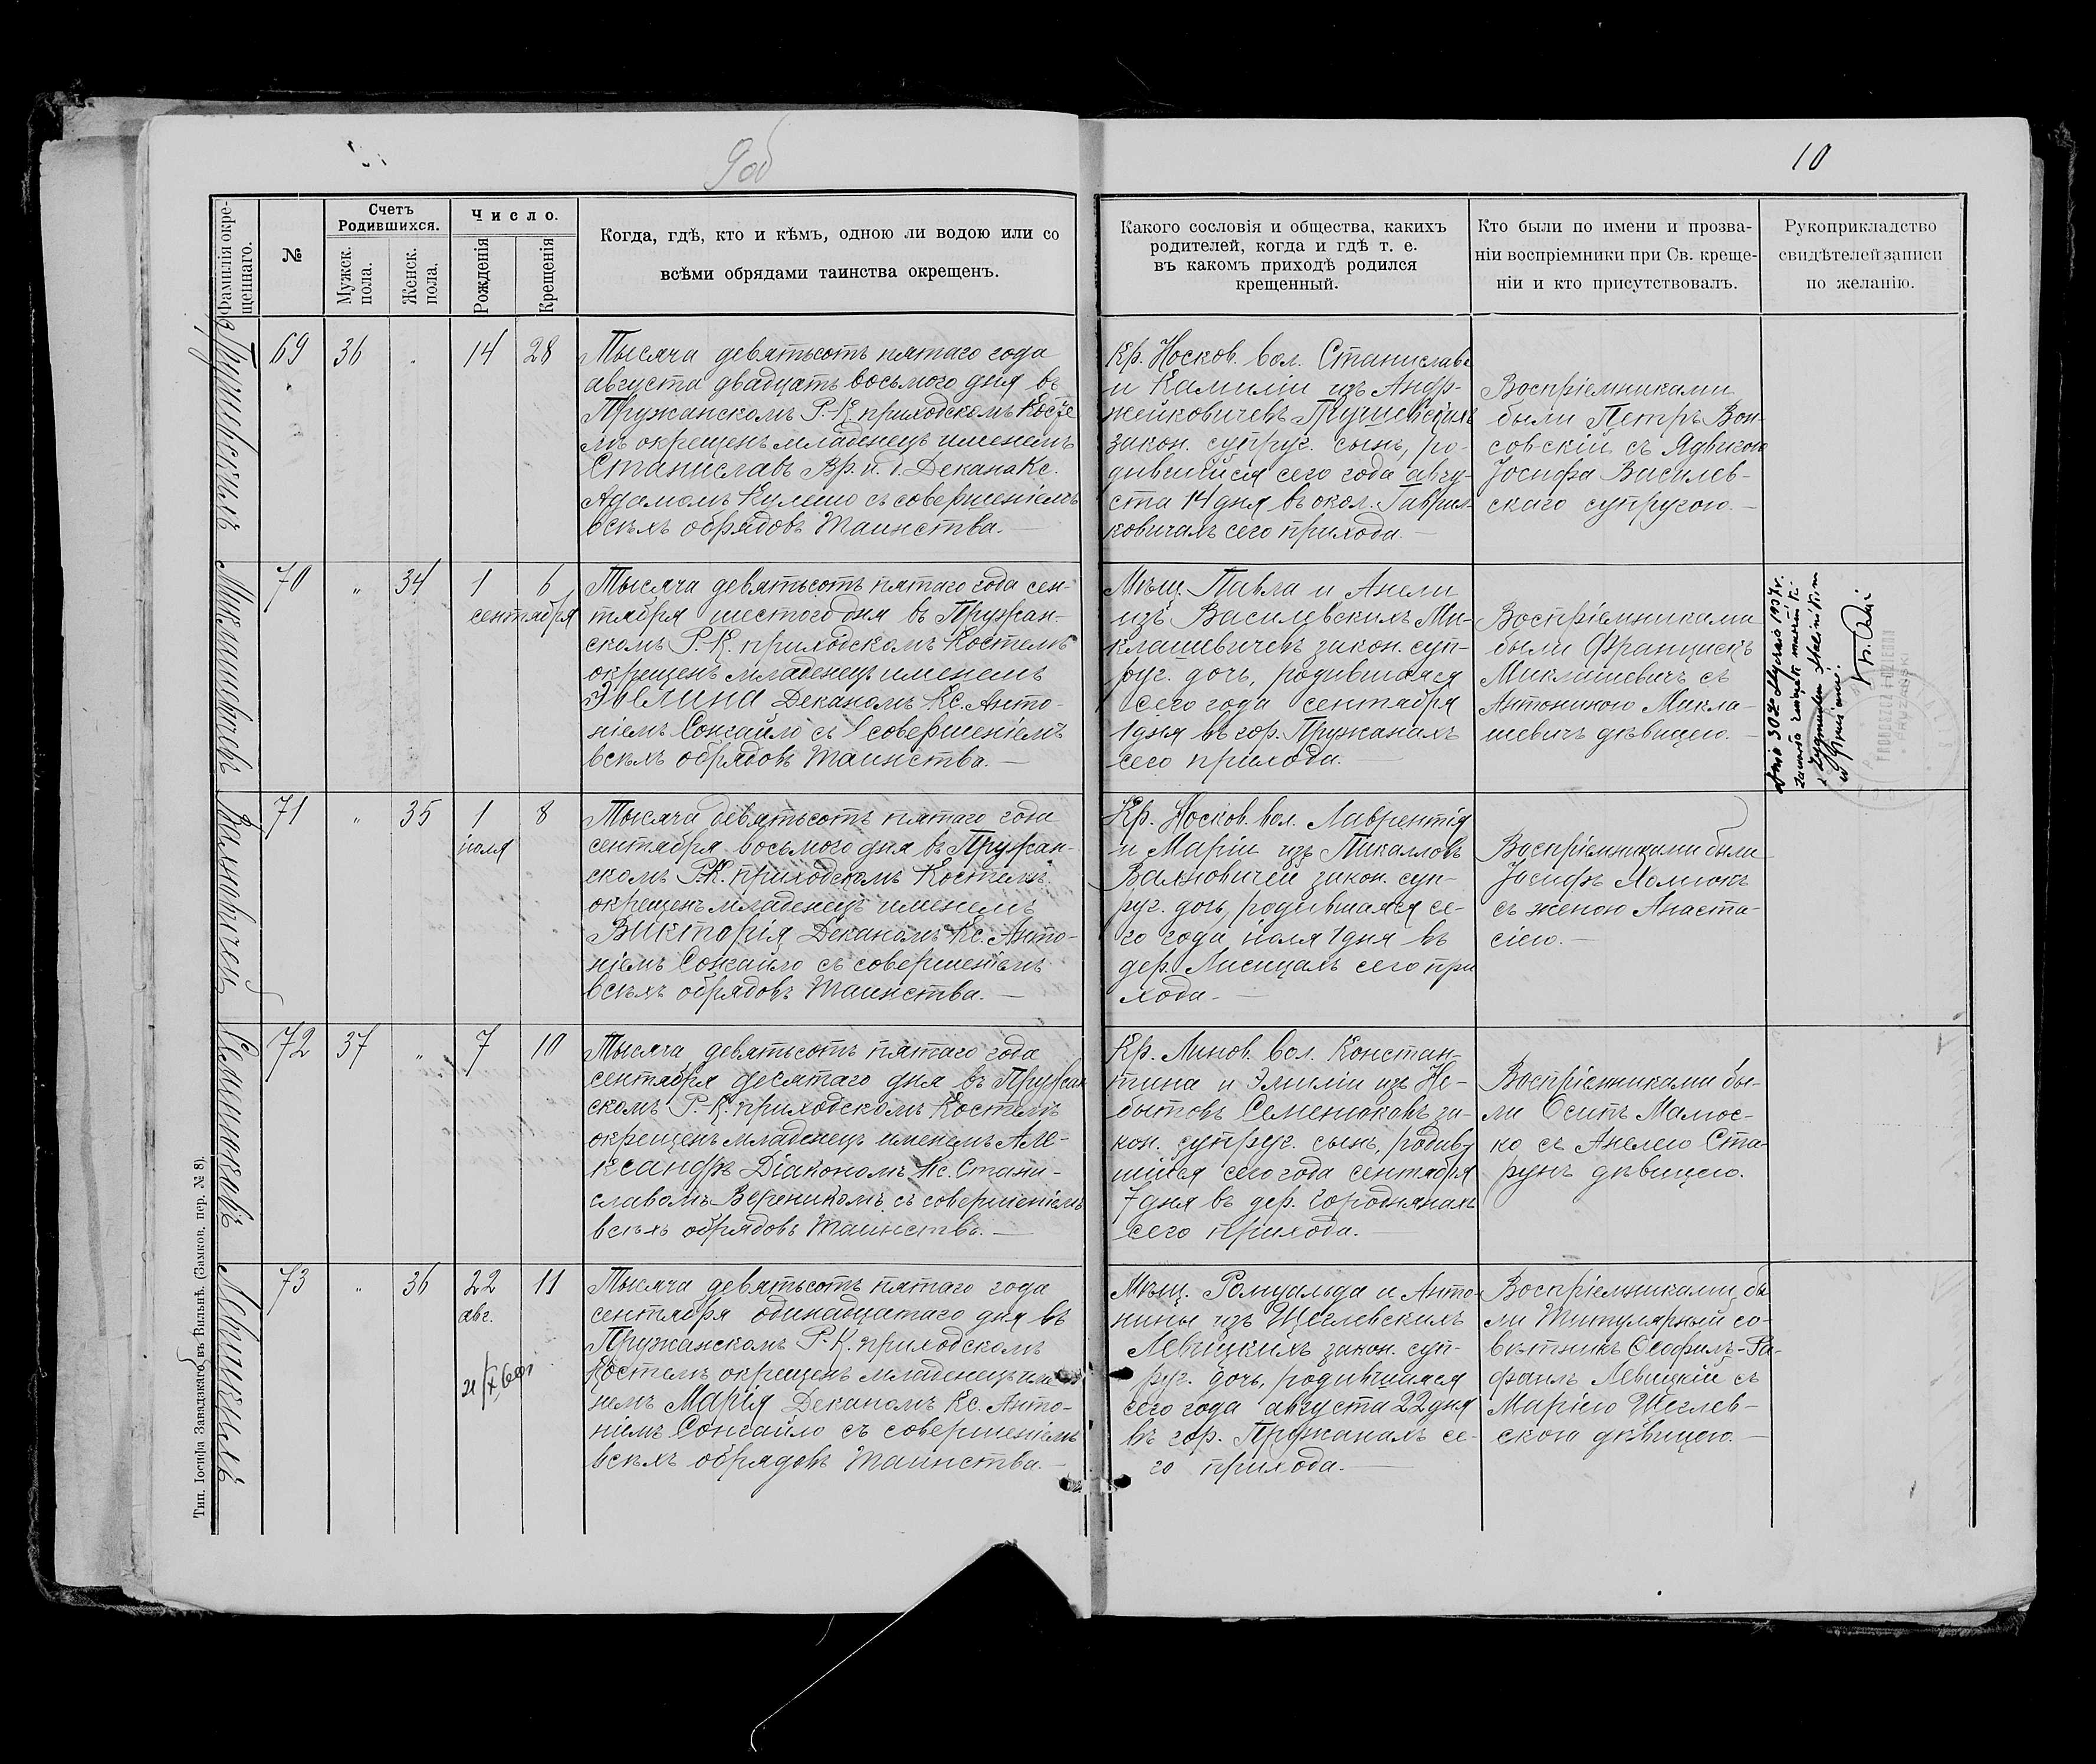 9об
10
Фамилія окре-
щеннаго.
№
Счетъ
Родившихся.
Мужск.
пола.
Женск.
пола.
Число.
Рожденія
Крещенія
Когда, гдѣ, кто и кѣмъ, одною ли водою или со
всѣми обрядами таинства окрещенъ.
Какого сословія и общества, какихъ
родителей, когда и гдѣ т. е.
въ какомъ приходѣ родился
крещенный.
Кто были по имени и прозва-
ніи воспріемники при Св. креще-
ніи и кто присутствовалъ.
Рукоприкладство
свидѣтелей записи
по желанію.
69 36 " 14 28
Тысяча девятьсотъ пятаго года
августа двадцать восьмого дня въ
Пружанскомъ Р.-К. приходскомъ Косте
лѣ окрещенъ младенецъ именемъ
Станиславъ Вр. и. д. Декана Кс.
Адамомъ Кулешо съ совершеніемъ
всѣхъ обрядовъ Таинства. —
Кр. Носков. вол. Станислава
и Камиліи изъ Анд-
жейковичевъ Прушевскихъ
закон. супруг. сынъ, ро-
дившійся сего года авгу-
ста 14 дня въ окол. Гаврил-
ковичахъ сего прихода. —
Воспріемниками
были Петръ Вон-
совскій съ Ядвигою
Іосифа Василев-
скаго супругою. —
Миклашевичевъ
70 " 34 1 6
сентября
Тысяча девятьсотъ пятаго года сен-
тября шестого дня въ Пружан-
скомъ Р.-К. приходскомъ Костелѣ
окрещенъ младенецъ именемъ
Эвелина Деканомъ Кс. Анто-
ніемъ Сонгайло съ совершеніемъ
всѣхъ обрядовъ Таинства. —
Мѣщ. Павла и Анели
изъ Василевскихъ Ми-
клашевичевъ закон. суп-
руг. дочь, родившаяся
сего года сентября
1 дня въ гор. Пружанахъ
сего прихода. —
Воспріемниками
были Францискъ
Миклашевичъ съ
Антониною Микла-
шевичъ дѣвицею. —
Вахновичей
71 " 35 1 8
іюля
Тысяча девятьсотъ пятаго года
сентября восьмого дня въ Пружан-
скомъ Р.-К. приходскомъ Костелѣ
окрещенъ младенецъ именемъ
Викторія Деканомъ Кс. Анто-
ніемъ Сонгайло съ совершеніемъ
всѣхъ обрядовъ Таинства. —
Кр. Носков. вол. Лаврентія
и Маріи изъ Пикалловъ
Вахновичей закон. суп-
руг. дочь, родившаяся се-
го года іюля 1 дня въ
дер. Лисицахъ сего при
хода. —
Воспріемниками были
Іосифъ
съ женою Анаста-
сіею. —
Семенюковъ
72 37 " 7 10
Тысяча девятьсотъ пятаго года
сентября десятаго дня въ Пружан
скомъ Р.-К. приходскомъ Костелѣ
окрещенъ младенецъ именемъ Але-
ксандръ Діакономъ Кс. Стани-
славомъ съ совершеніемъ
всѣхъ обрядовъ Таинства. —
Кр. Линов. вол. Констан-
тина и Эмиліи изъ Не-
бытовъ Семенюковъ за-
кон. супруг. сынъ, родив
шійся сего года сентября
7 дня въ дер. Городнянахъ
сего прихода. —
Воспріемниками бы-
ли Осипъ
съ Анелею Ста-
рунъ дѣвицею.
Левицкихъ
73 " 36 22 11
авг.
Тысяча девятьсотъ пятаго года
сентября одинадцатаго дня въ
Пружанскомъ Р.-К. приходскомъ
Костелѣ окрещенъ младенецъ име
немъ Марія Деканомъ Кс. Анто-
ніемъ Сонгайло съ совершеніемъ
всѣхъ обрядовъ Таинства. —
Мѣщ. Ромуальда и Анто-
нины изъ Щеглевскихъ
Левицкихъ закон. суп-
руг. дочь, родившаяся
сего года августа 22 дня
въ гор. Пружанахъ се-
го прихода. —
Воспріемниками бы
ли Титулярный со-
вѣтникъ
Левицкій съ
Маріею Щеглев-
скою дѣвицею. —
Тип. Іосифа Завадзкаго въ Вильнѣ. (Замков. пер. № 8).